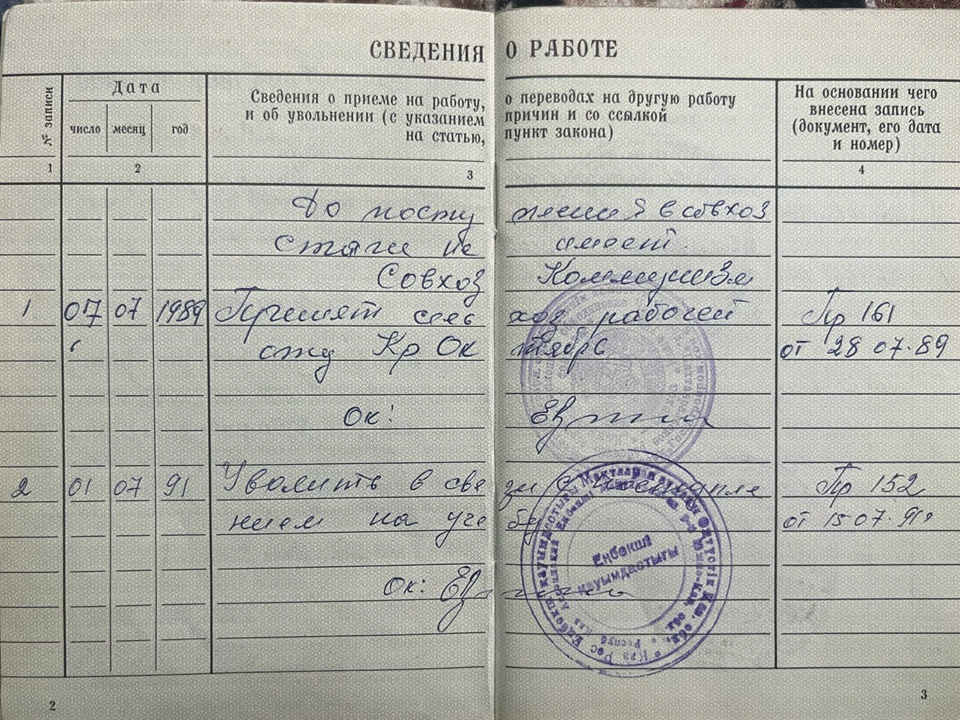 СВЕДЕНИЯ О РАБОТЕ
№ записи
Дата
число месяц год
Сведения о приеме на работу, о переводах на другую работу
и об увольнении (с указанием причин и со ссылкой
на статью, пункт закона)
На основании чего
внесена запись
(документ, его дата
и номер)
1 2 3 4
До посту пления в совхоз
стажа не имеет.
Совхоз Коммунизм
1 07 07 1989 Принят сель хоз рабочей Пр 161
Кр Ок тябрь от 28 07.89
Ок:
2 01 07 91 Уволить в свя зи с поступле Пр 152
нием на уче бу от 15 07.91
Ок:
Еңбекші
қауымдастығы
2
3